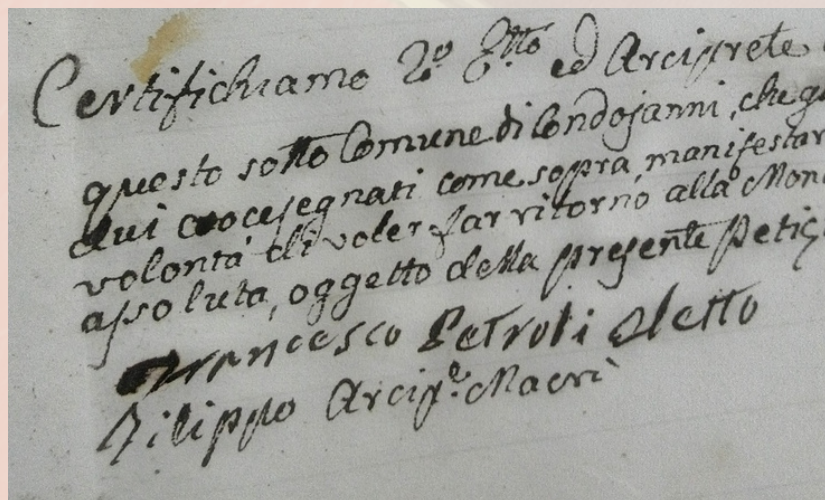 Certifichiamo 2º Eltto ed Arciprete
questo sotto Comune di Condojanni, che
dui crocesegnati come sopra, manifestar
volontà di voler far ritorno alla Mon
assoluta, oggetto della presente Petiz
Francesco Petroli Eletto
Filippo Arcip.e Macrì